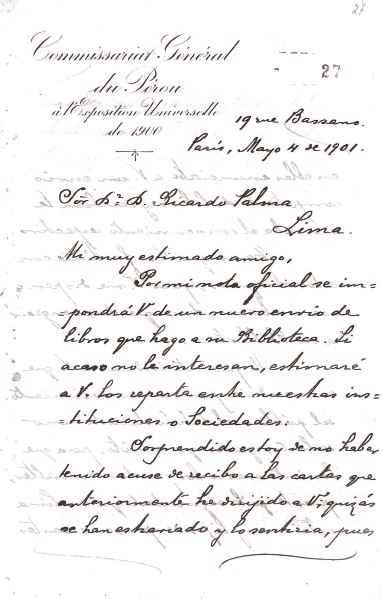 27
Commissariat Général
du Pérou
à l'Exposition Universelle
de 1900
27
19 rue Bassano.
París, Mayo 4 de 1901.
Sor. Dr. D. Ricardo Palma
Lima.
Mi muy estimado amigo,
Por mi nota oficial se im-
=pondrá V. de un nuevo envio de
libros que hago a su Biblioteca. Si
acaso no le interesan, estimaré
a V. los reparta entre nuestras ins-
=tituciones o Sociedades.
Sorprendido estoy de no haber
tenido acuse de recibo a las cartas que
anteriormente he dirijido a V., quizás
se han estraviado y lo sentiria, pues